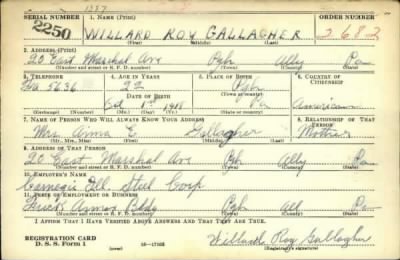 1337
SERIAL NUMBER 1. NAME (Print) ORDER NUMBER
2250 WILLARD ROY GALLAGHER 2682
(First) (Middle) (Last)
2. ADDRESS (Print)
20 East Marshal Ave Pgh Ally Pa
(Number and street or R. F. D. number) (Town) (County) (State)
3. TELEPHONE 4. AGE IN YEARS 5. PLACE OF BIRTH 6. COUNTRY OF CITIZENSHIP
5636 22 Pgh
DATE OF BIRTH (Town or county)
Oct 1 1918 Pa American
(Mo.) (Day) (Yr.) (State or country)
7. NAME OF PERSON WHO WILL ALWAYS KNOW YOUR ADDRESS 8. RELATIONSHIP OF THAT PERSON
Mrs. Anna E. Gallagher Mother
(Mr., Mrs., Miss) (First) (Middle) (Last)
9. ADDRESS OF THAT PERSON
20 East Marshal Ave Pgh Ally Pa
(Number and street or R. F. D. number) (Town) (County) (State)
10. EMPLOYER'S NAME
Carnegie Ill. Steel Corp
11. PLACE OF EMPLOYMENT OR BUSINESS
Frick Annex Bldg Pgh All Pa
(Number and street or R. F. D. number) (Town) (County) (State)
I AFFIRM THAT I HAVE VERIFIED ABOVE ANSWERS AND THAT THEY ARE TRUE.
REGISTRATION CARD
D. S. S. Form 1 (over) Willard Roy Gallagher
(Registrant's signature)